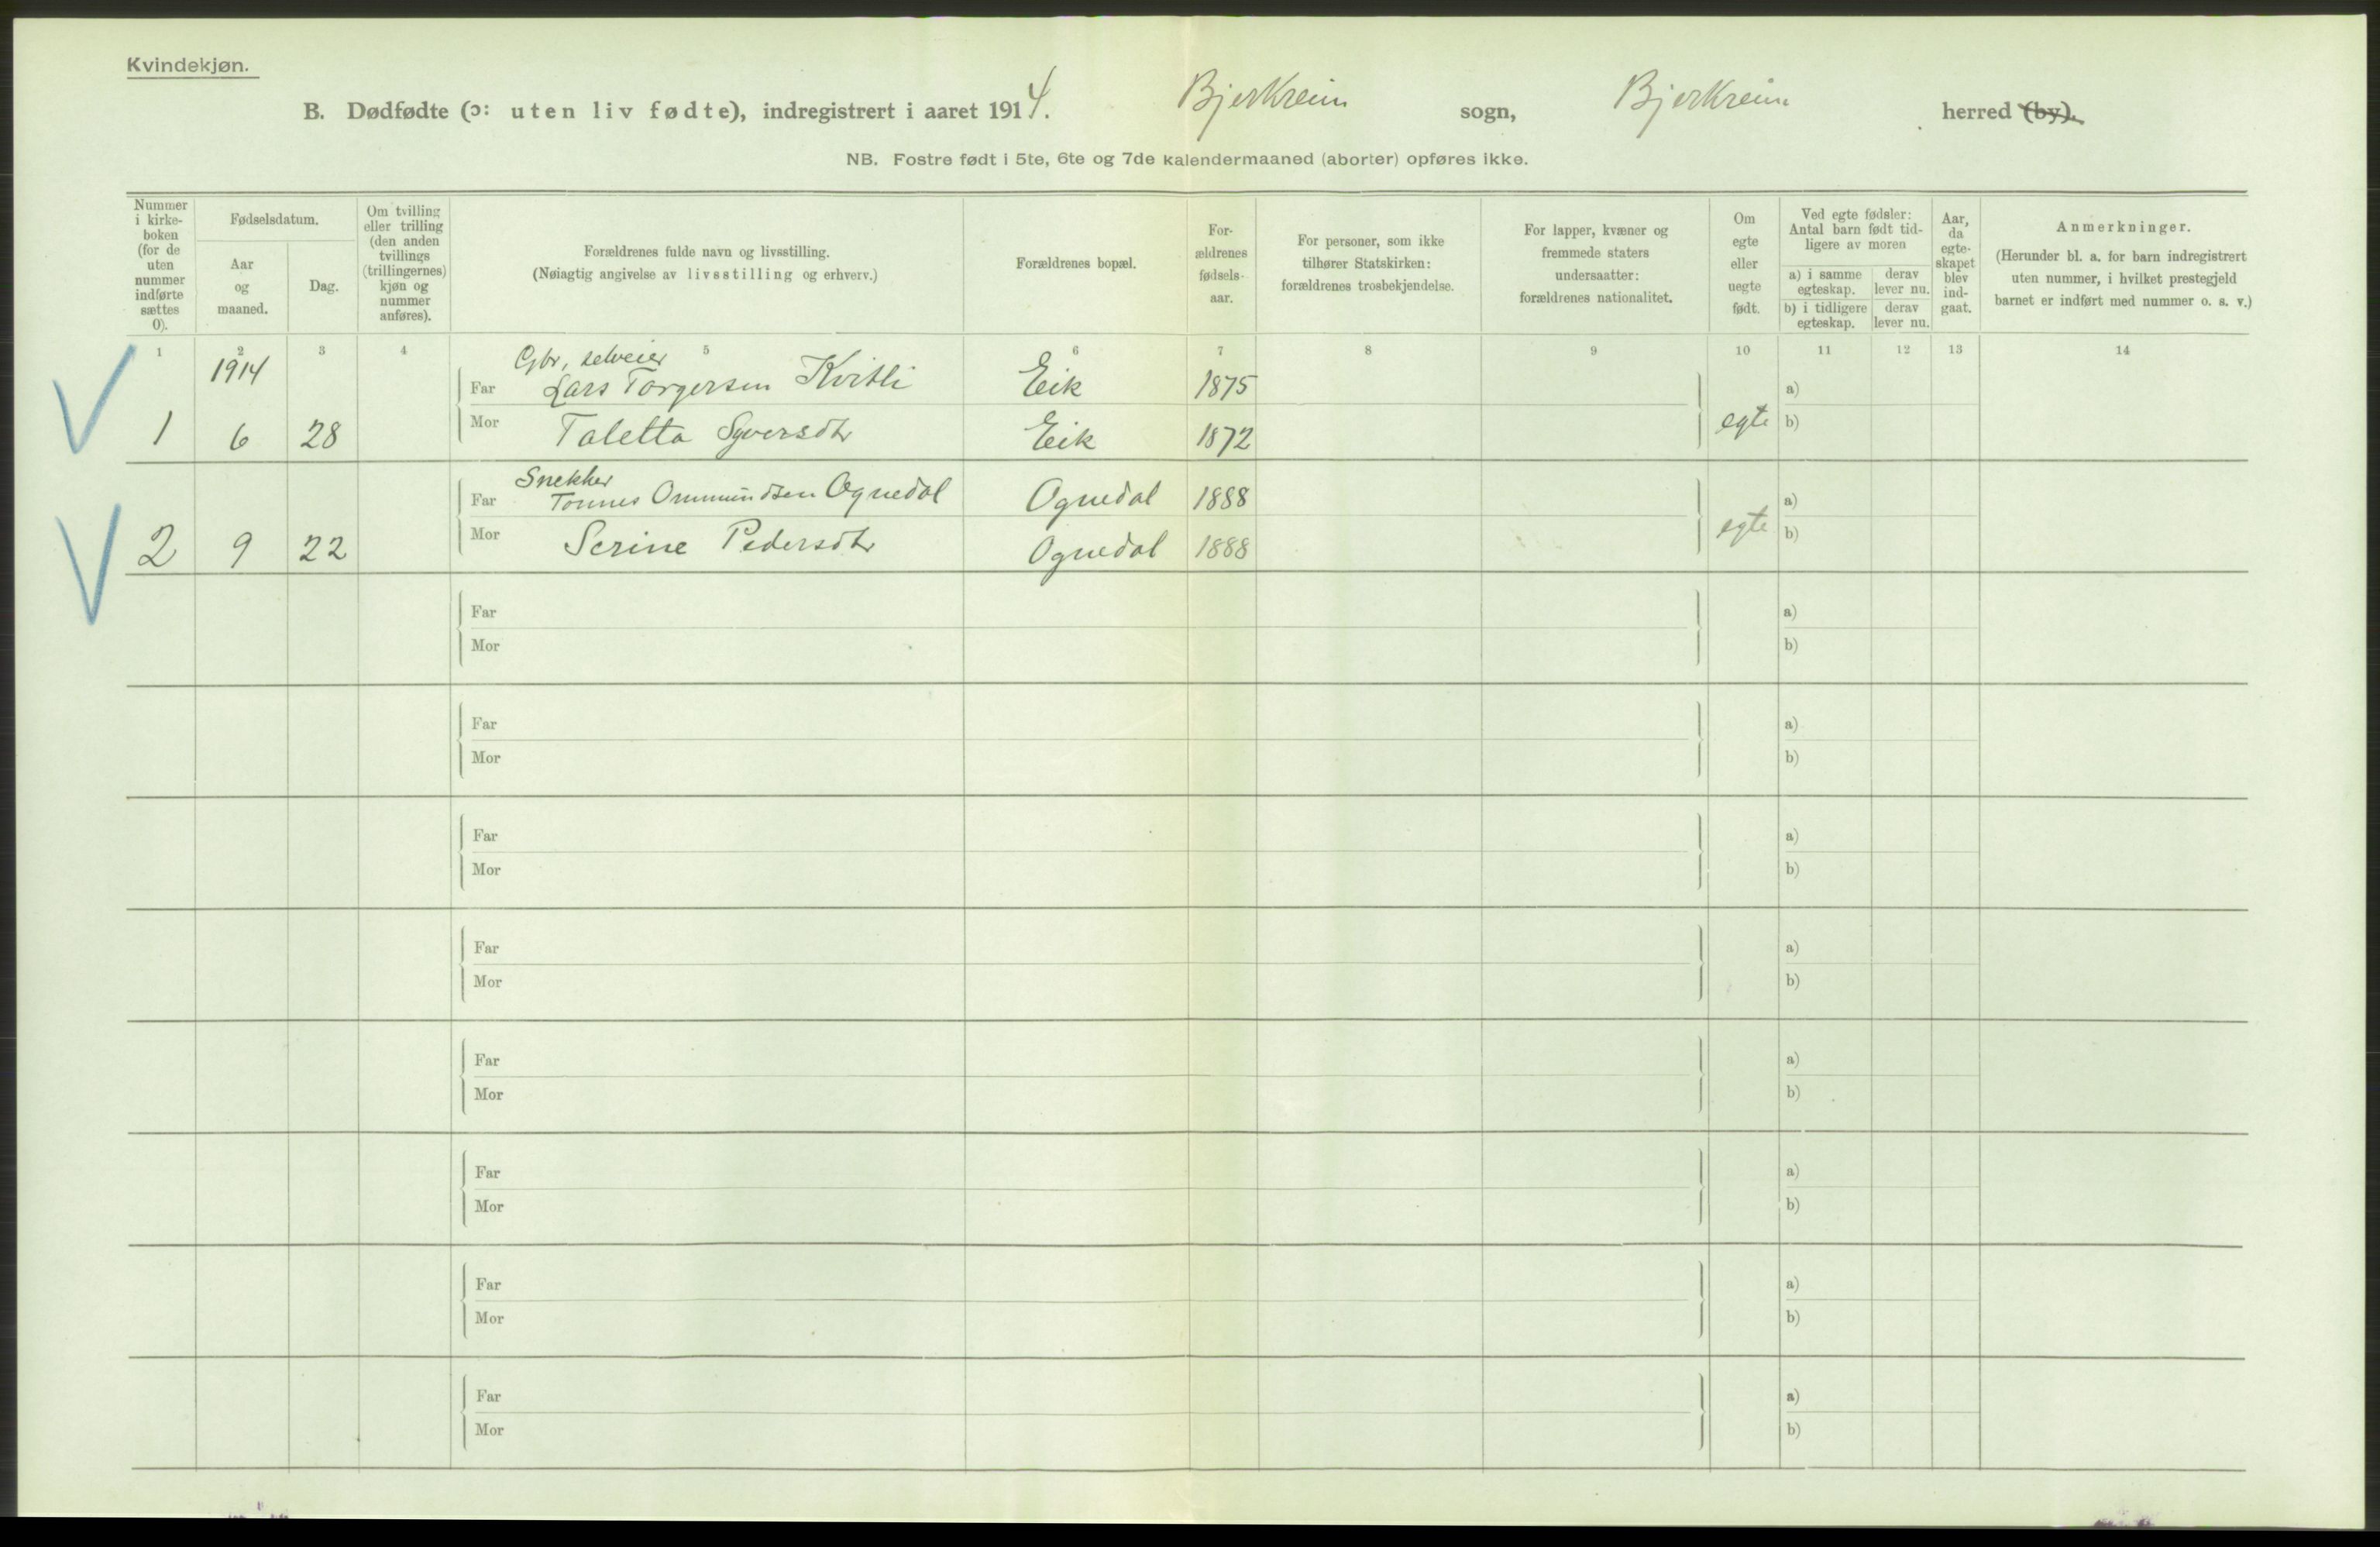 Kvindekjøn.
B. Dødfødte (ɔ: uten liv fødte), indregistrert i aaret 1914. Bjerkreim sogn, Bjerkreim herred (by).
NB. Fostre født i 5te, 6te og 7de kalendermaaned (aborter) opføres ikke.
Nummer i kirke- boken (for de uten nummer indførte sættes 0).
Fødselsdatum.
Aar og maaned.
Dag.
Om tvilling eller trilling (den anden tvillings (trillingernes) kjøn og nummer anføres).
Forældrenes fulde navn og livsstilling.
(Nøiagtig angivelse av livsstilling og erhverv.)
Forældrenes bopæl.
For- ældrenes fødsels- aar.
For personer, som ikke tilhører Statskirken: forældrenes trosbekjendelse.
For lapper, kvæner og fremmede staters undersaatter: forældrenes nationalitet.
Om egte eller uegte født.
Ved egte fødsler: Antal barn født tid- ligere av moren
a) i samme egteskap.
derav lever nu.
b) i tidligere egteskap.
derav lever nu.
Aar, da egte- skapet blev ind- gaat.
Anmerkninger.
(Herunder bl. a. for barn indregistrert uten nummer, i hvilket prestegjeld barnet er indført med nummer o. s. v.)
1 2 3 4 5 6 7 8 9 10 11 12 13 14
1914
Gbr, selveier
Far Lars Torgersen Kvitli Eik 1875 a)
1 6 28 Mor Taletta Syversdtr Eik 1872 egte b)
Snekker
Far Tonnes Ommundsen Ognedal Ognedal 1888 a)
2 9 22 Mor Serine Pedersdtr Ognedal 1888 egte b)
Far a)
Mor b)
Far a)
Mor b)
Far a)
Mor b)
Far a)
Mor b)
Far a)
Mor b)
Far a)
Mor b)
Far a)
Mor b)
Far a)
Mor b)